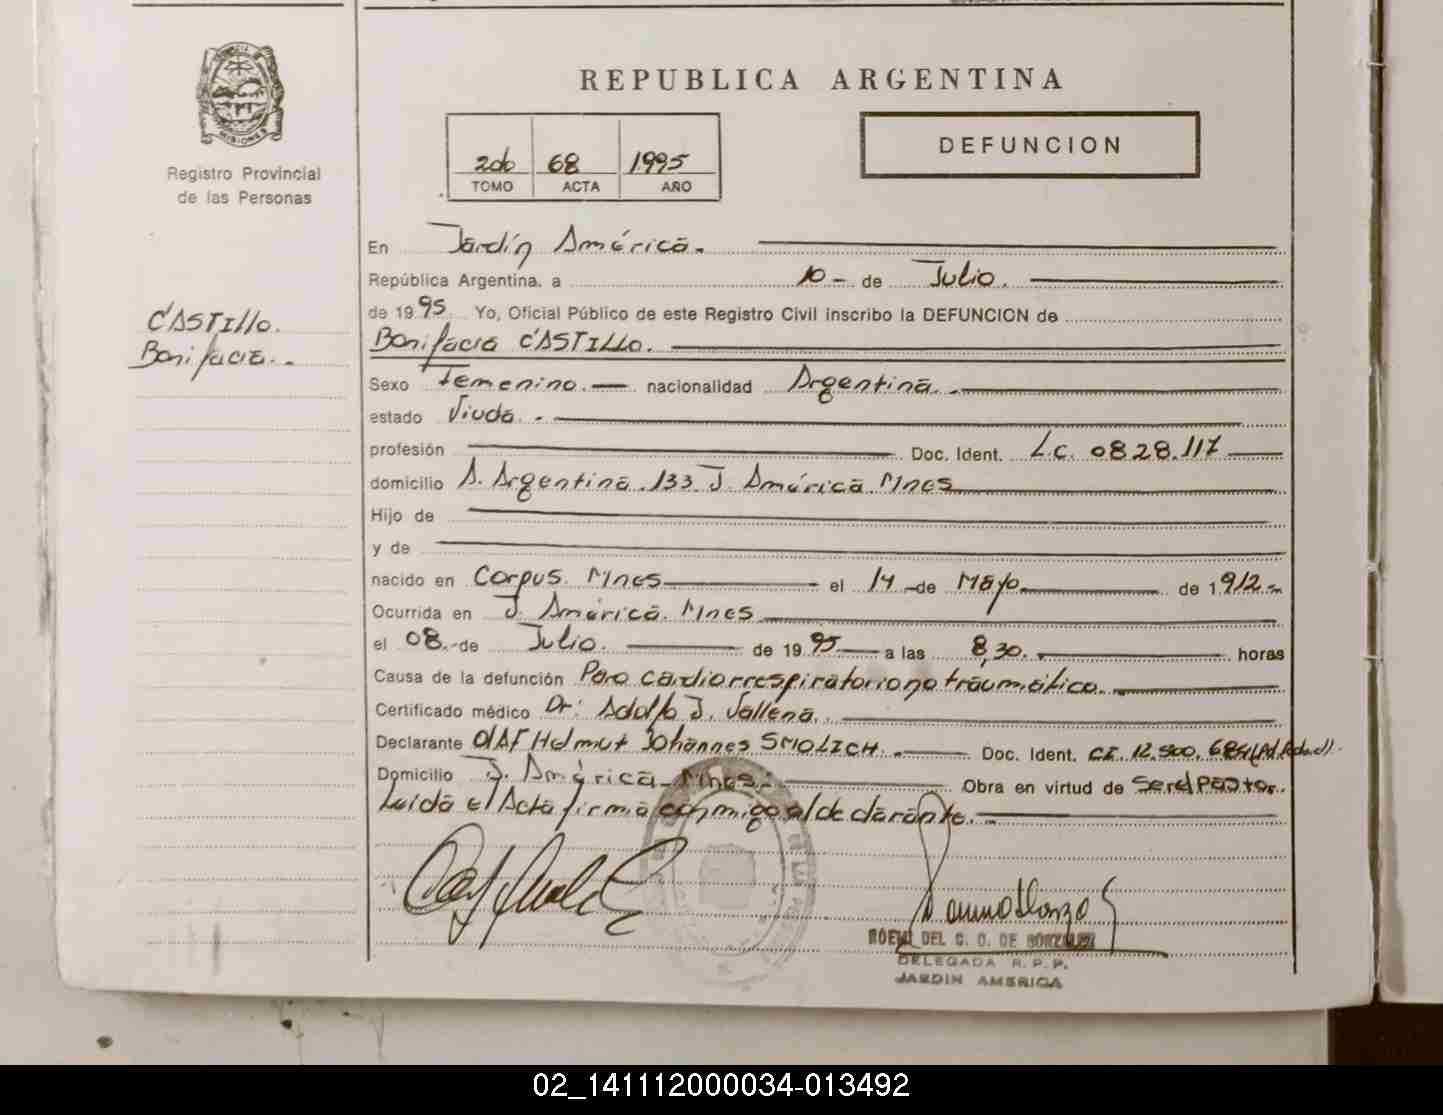 REPUBLICA ARGENTINA
DEFUNCION
2do 68 1995
TOMO ACTA AÑO
MISIONES
Registro Provincial
de las Personas
CASTILLO.
Bonifacia.-
En Jardín América.
República Argentina, a 10- de Julio.
de 1995 Yo, Oficial Público de este Registro Civil inscribo la DEFUNCION de
Bonifacia CASTILLO.
Sexo Femenino. nacionalidad Argentina.
estado Viuda.-
profesión Doc. Ident. L.C. 0828.117
domicilio A. Argentina. 133 J. América. Mnes
Hijo de
y de
nacido en Corpus. Mnes el 14 -de Mayo de 1912.-
Ocurrida en J. América. Mnes
el 08.- de Julio. de 1995 a las 8,30. horas
Causa de la defunción Paro cardiorrespiratorio no traumático.
Certificado médico Dr: Adolfo J. Vallena.
Declarante Olaf Helmut Johannes SMOLICH.- Doc. Ident. CI. 12.500.684
Domicilio J. América. Mnes.- Obra en virtud de Ser el Pastor.
Leida el Acta firma conmigo al declarante.-
NOEMI DEL C. O. DE GONZALEZ
DELEGADA R. P. P.
JARDIN AMERICA
02_141112000034-013492